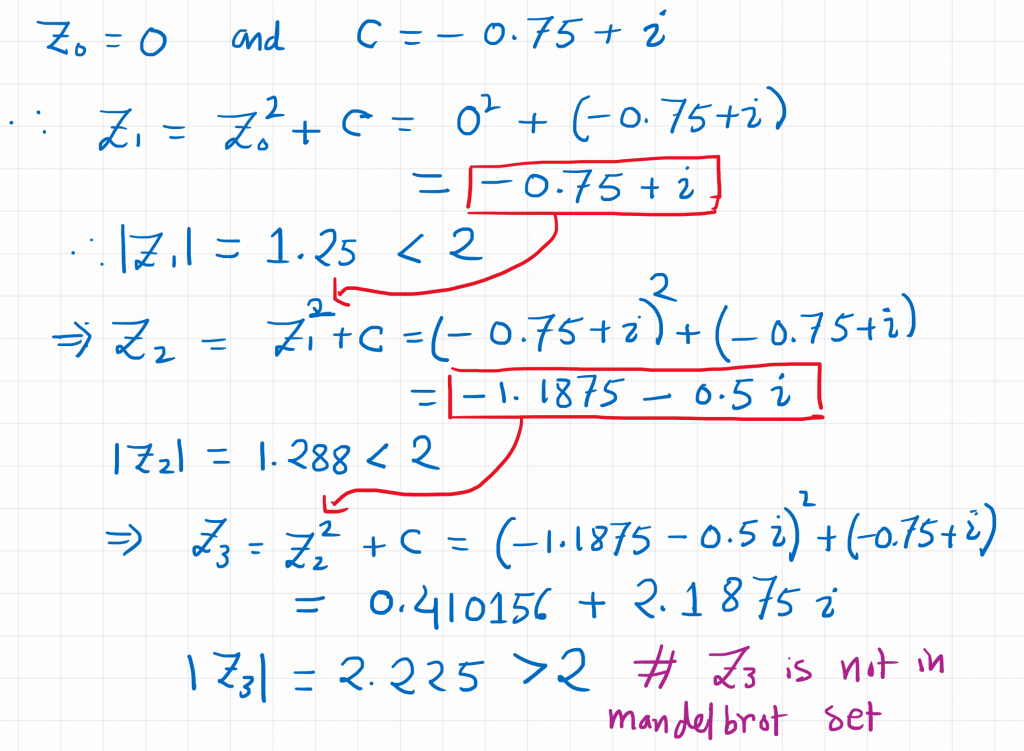 Z₀ = 0 and C = - 0.75 + i
∵ Z₁ = Z₀² + C = 0² + (-0.75+i)
= -0.75 + i
∴ |Z₁| = 1.25 < 2
⇒ Z₂ = Z₁² + C = (- 0.75 + i)² + (- 0.75+i)
= -1.1875 - 0.5 i
|Z₂| = 1.288 < 2
⇒ Z₃ = Z₂² + C = (-1.1875 - 0.5 i)² + (-0.75+i)
= 0.410156 + 2.1875 i
|Z₃| = 2.225 > 2 # Z₃ is not in
mandelbrot set